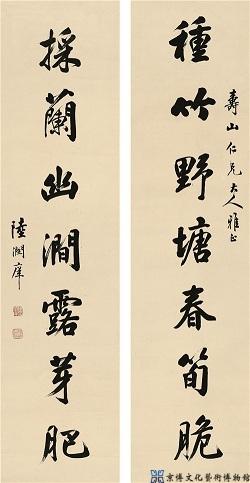 種竹野塘春筍脆
壽山仁兄大人雅正
採蘭幽澗露芽肥
陸潤庠
京博文化藝術博物館